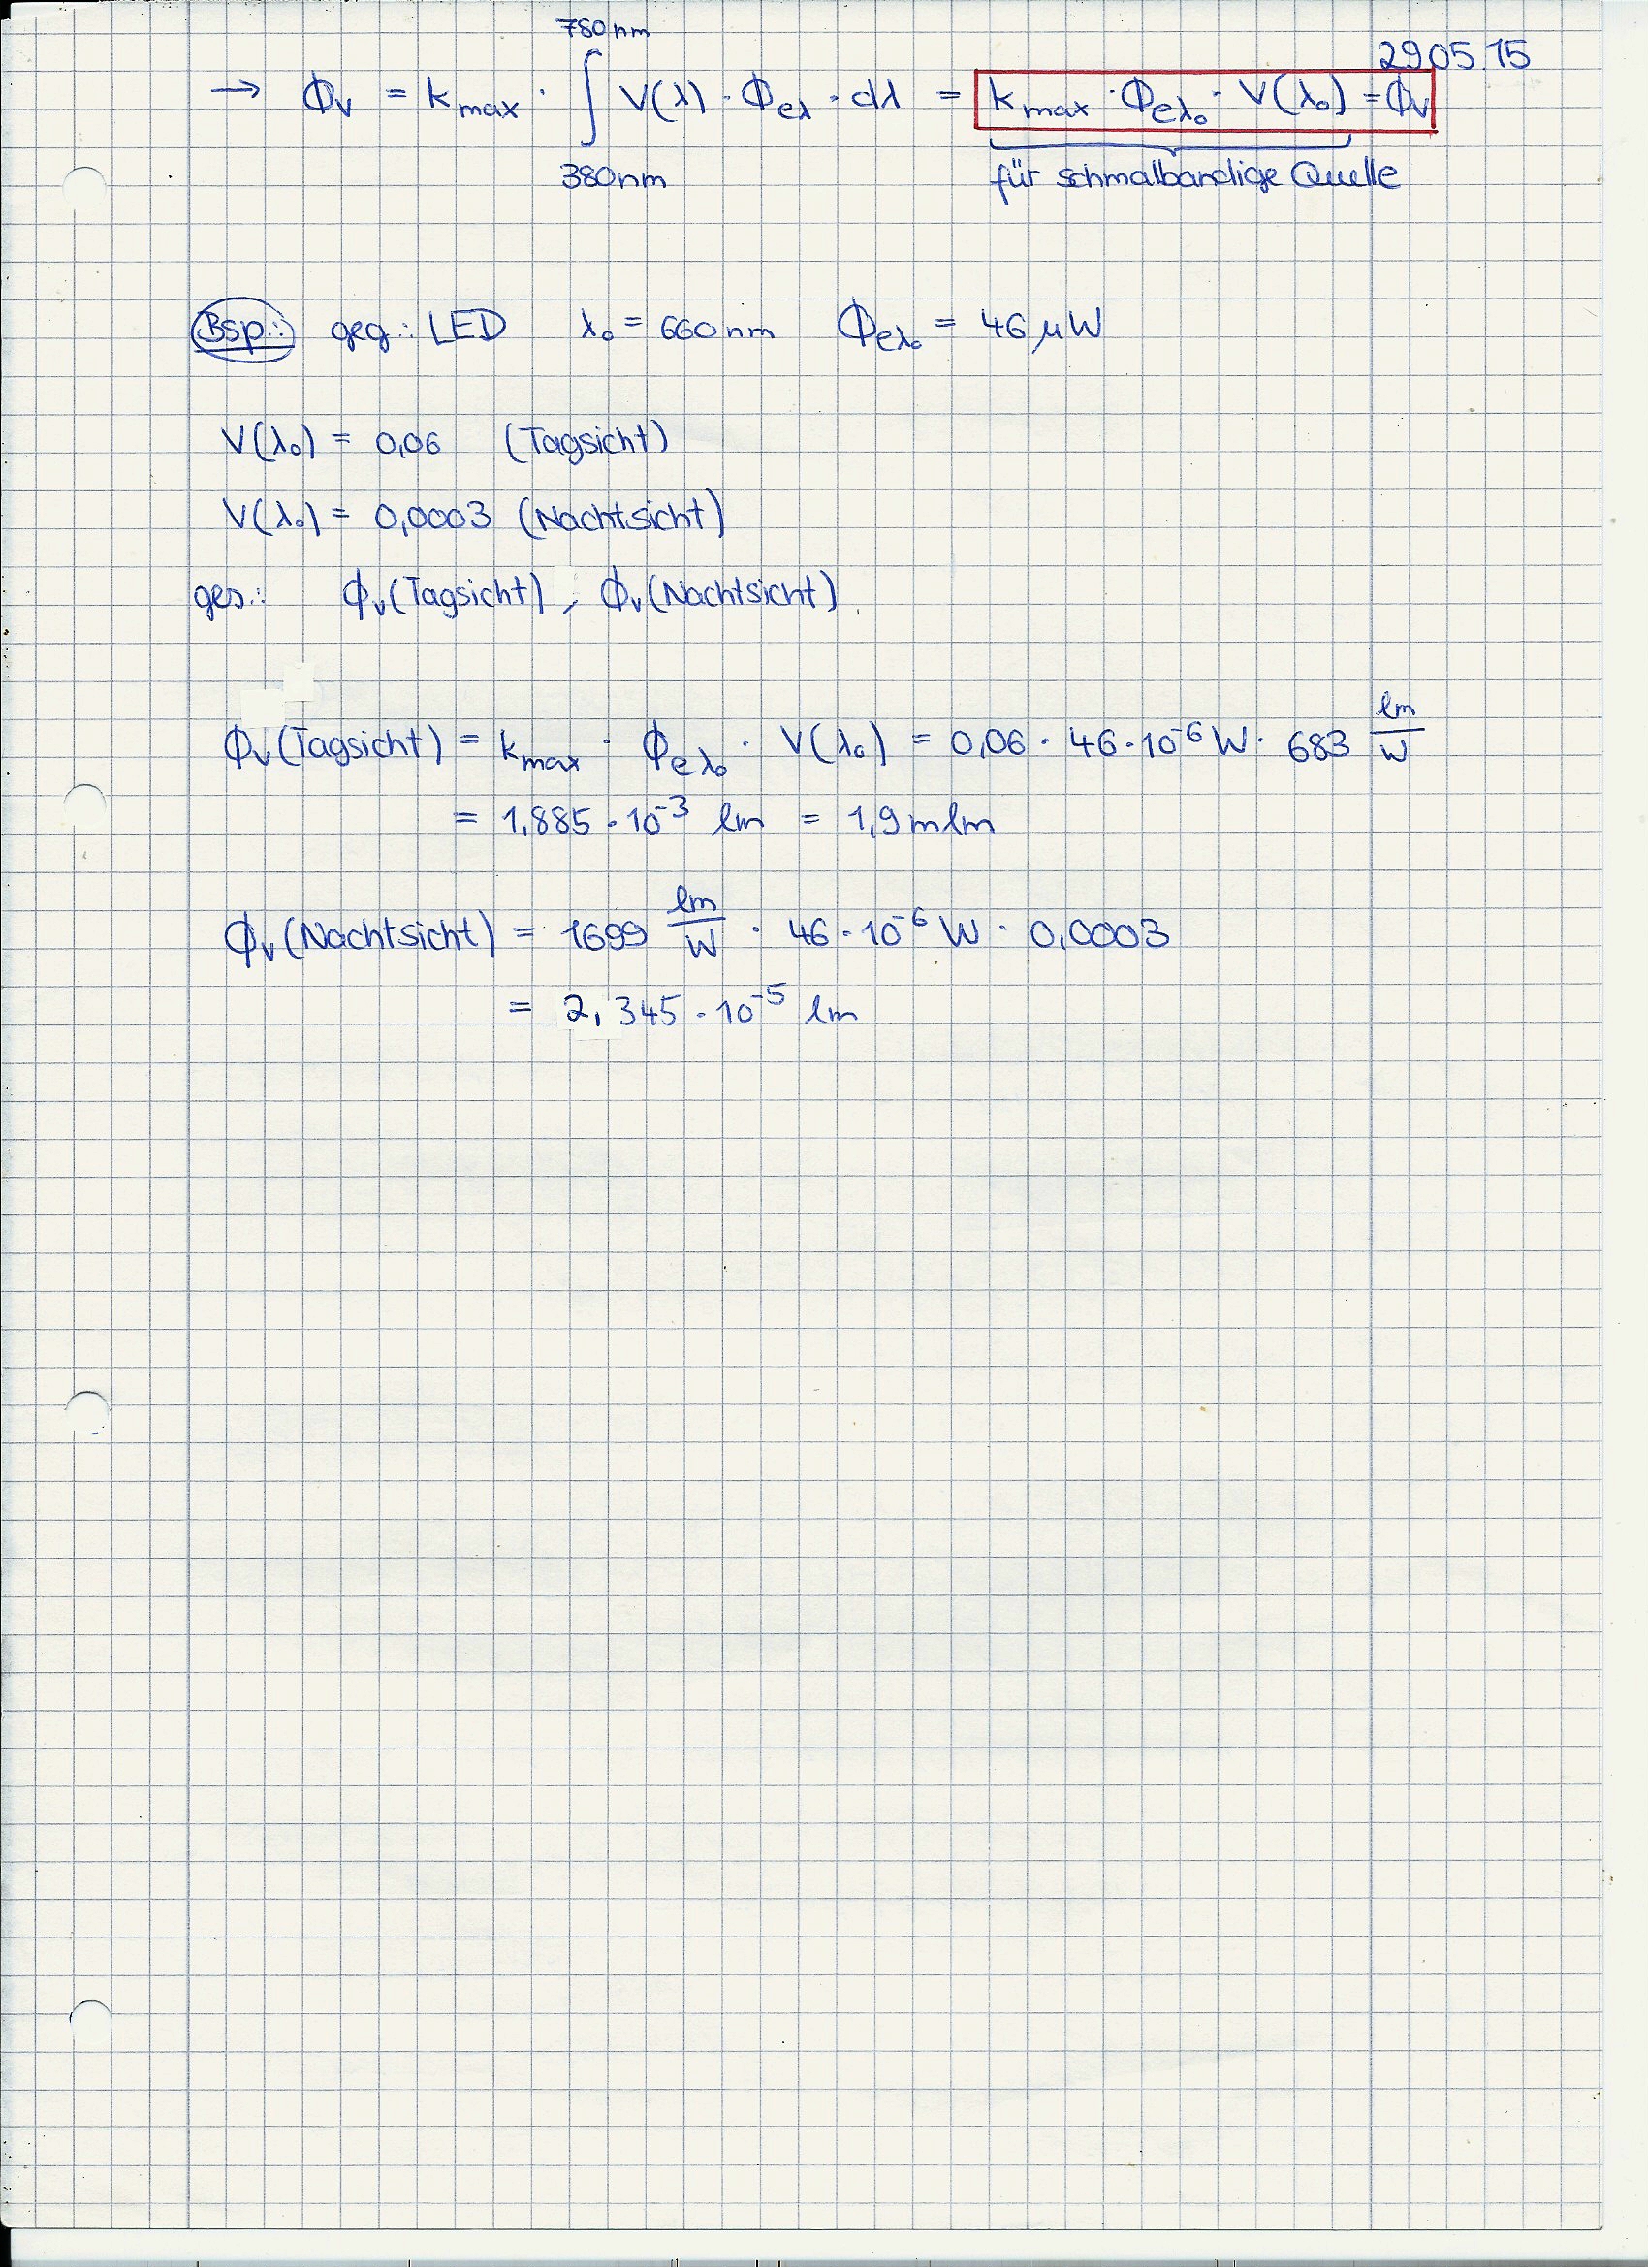 29.05.15
→ Φv = kmax · ∫ 380nm 780nm V(λ) · Φeλ · dλ = kmax · Φeλ₀ · V(λ₀) = Φv
für schmalbandige Quelle
Bsp.: geg.: LED λ₀ = 660nm Φeλ₀ = 46 µW
V(λ₀) = 0,06 (Tagsicht)
V(λ₀) = 0,0003 (Nachtsicht)
ges.: Φv(Tagsicht), Φv(Nachtsicht)
Φv(Tagsicht) = kmax · Φeλ₀ · V(λ₀) = 0,06 · 46·10⁻⁶ W · 683 lm/W
= 1,885 · 10⁻³ lm = 1,9 mlm
Φv(Nachtsicht) = 1699 lm/W · 46·10⁻⁶ W · 0,0003
= 2,345 · 10⁻⁵ lm